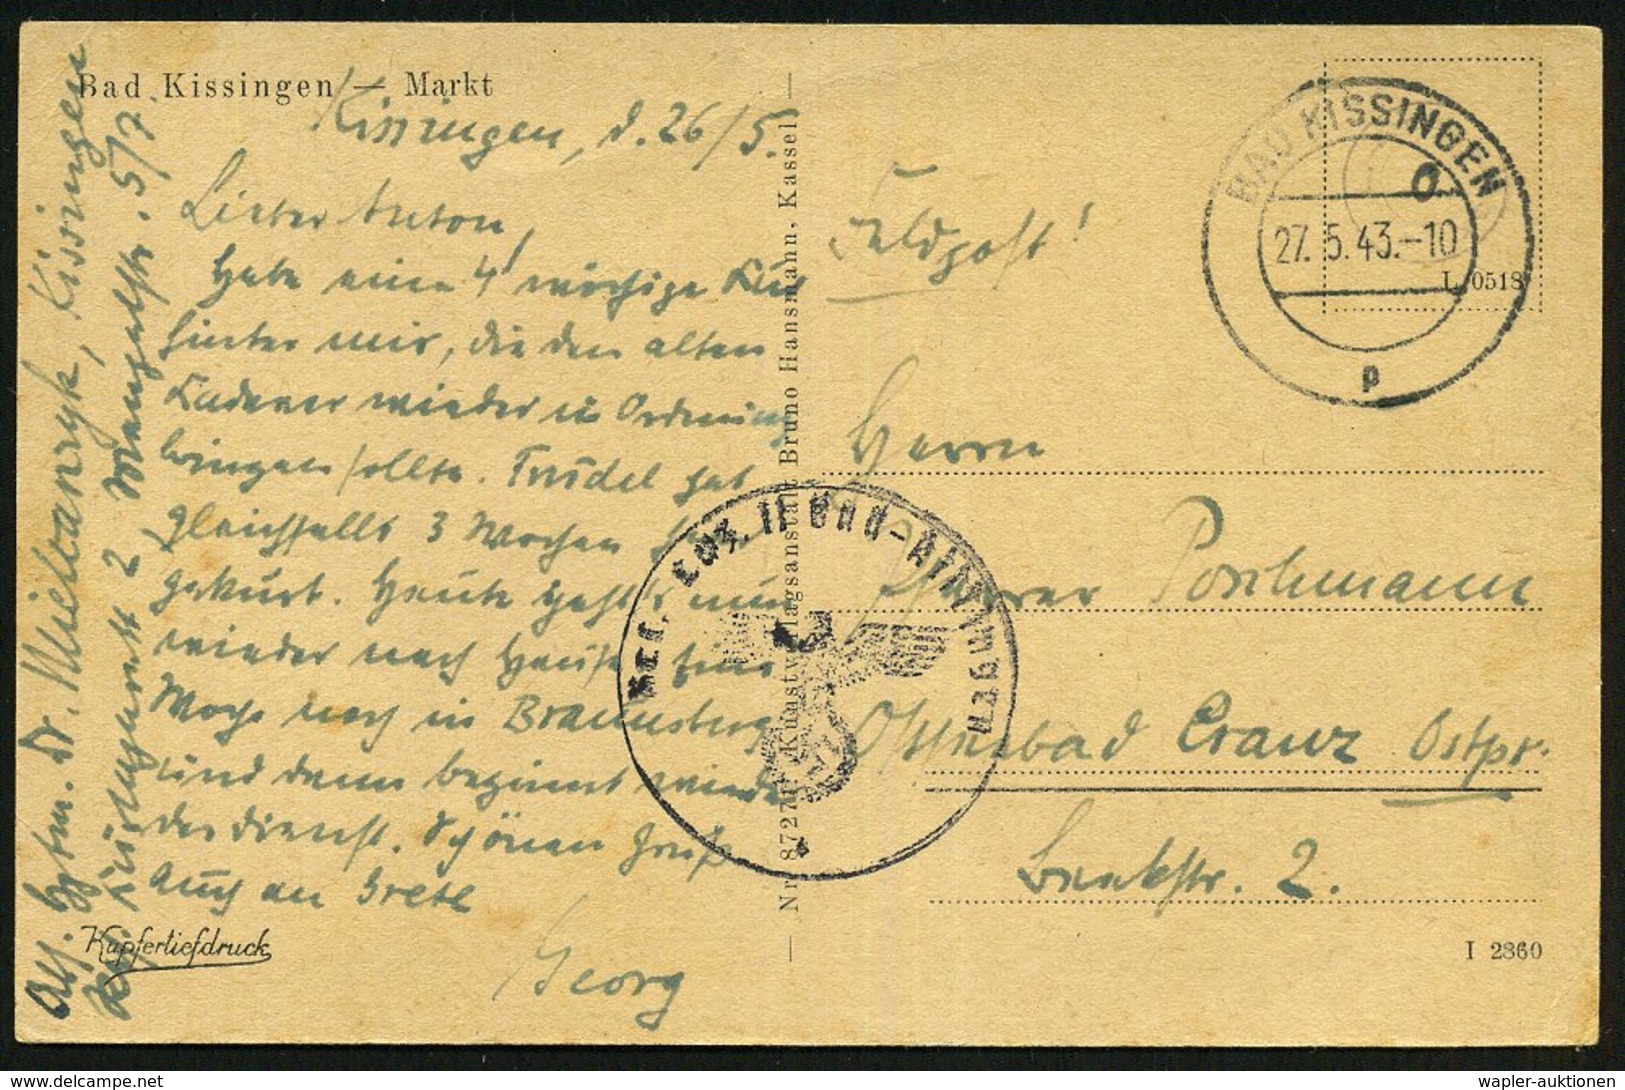 Bad Kissingen — Markt
Kissingen, d. 26/5.
Lieber Anton,
Habe eine 4 wöchige Kur
hinter mir, die den alten
Kadaver wieder in Ordnung
bringen sollte. Trudel hat
gleichfalls 3 Wochen
gekurt. Heute geht's nun
wieder nach Hause. Eine
Woche noch in Braunsberg
und dann beginnt wieder
der Dienst. Schönen Gruß
auch an Grete
Georg
Kupfertiefdruck
Abs. Hptm. Dr. Kissingen
2 5/7.
Nr. 8727 Kunstverlagsanstalt Bruno Hansmann, Kassel
Feldpost!
BAD KISSINGEN
27.5.43.-10
p
L 0518
Herrn
Pfarrer Poschmann
Ostseebad Cranz Ostpr.
Beekstr. 2.
Res. Laz. II Bad-Kissingen
I 2860
wapler-auktionen